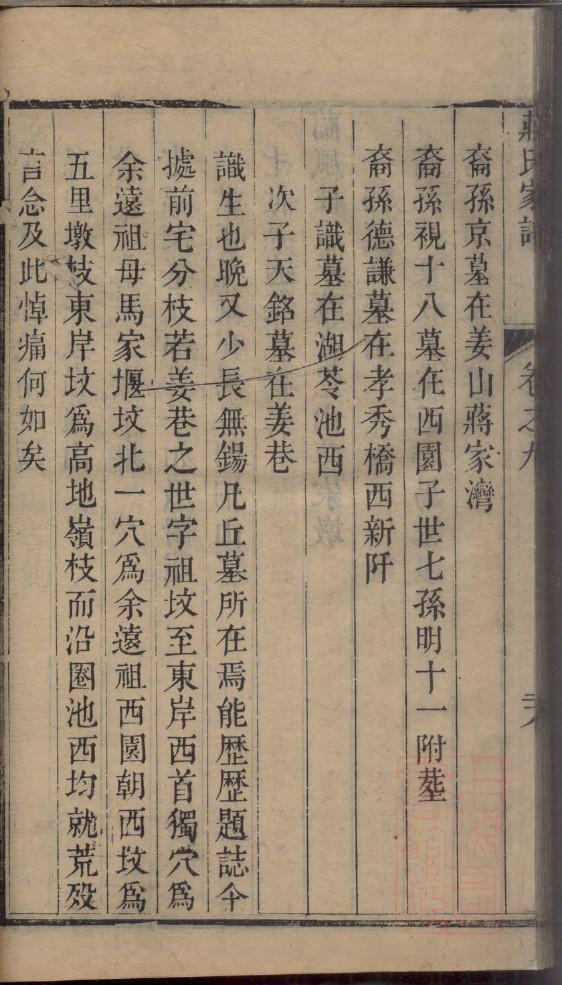 蔣氏家譜
卷之九
裔孫京墓在姜山蔣家灣
裔孫視十八墓在西園子世七孫明十一附塟
裔孫德謙墓在孝秀橋西新阡
子識墓在湖苓池西
次子天銘墓在姜巷
識生也晚又少長無錫凡丘墓所在焉能歴歴題誌今
據前宅分枝若姜巷之世字祖坟至東岸西首獨穴爲
余遠祖母馬家堰坟北一穴爲余遠祖西園朝西坟爲
五里墩枝東岸坟爲高地嶺枝而沿圈池西均就荒歿
言念及此悼痛何如矣